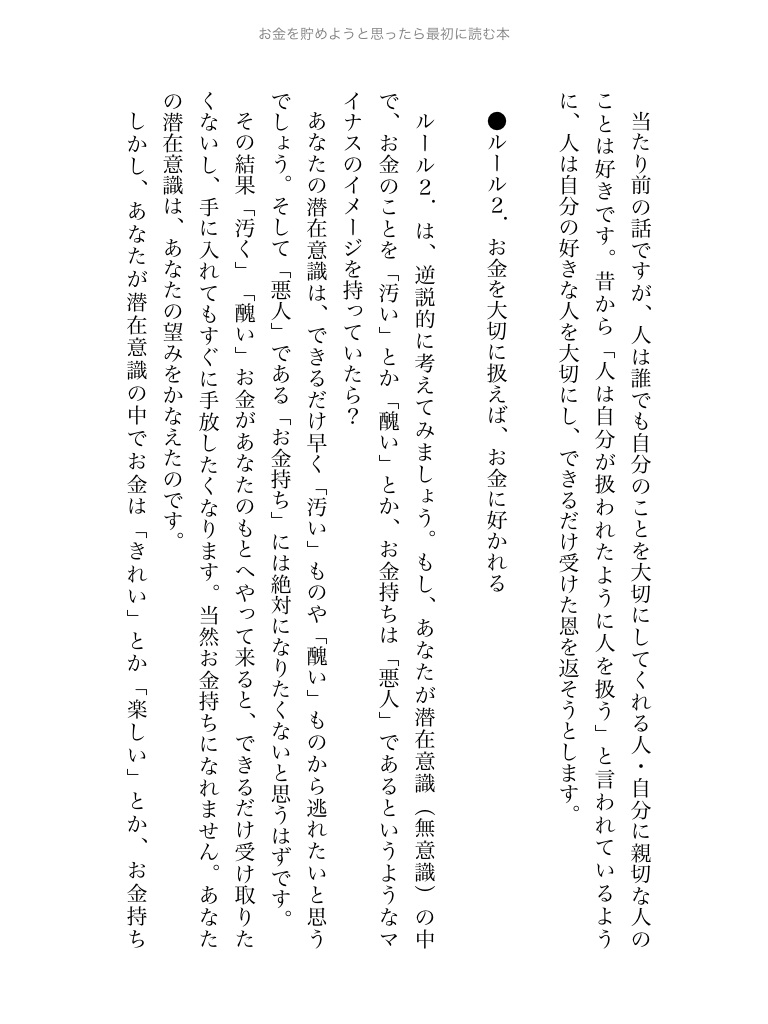 お金を貯めようと思ったら最初に読む本
当たり前の話ですが、人は誰でも自分のことを大切にしてくれる人・自分に親切な人の
ことは好きです。昔から「人は自分が扱われたように人を扱う」と言われているよう
に、人は自分の好きな人を大切にし、できるだけ受けた恩を返そうとします。
●ルール２．お金を大切に扱えば、お金に好かれる
ルール２．は、逆説的に考えてみましょう。もし、あなたが潜在意識（無意識）の中
で、お金のことを「汚い」とか「醜い」とか、お金持ちは「悪人」であるというようなマ
イナスのイメージを持っていたら？
あなたの潜在意識は、できるだけ早く「汚い」ものや「醜い」ものから逃れたいと思う
でしょう。そして「悪人」である「お金持ち」には絶対になりたくないと思うはずです。
その結果「汚く」「醜い」お金があなたのもとへやって来ると、できるだけ受け取りた
くないし、手に入れてもすぐに手放したくなります。当然お金持ちになれません。あなた
の潜在意識は、あなたの望みをかなえたのです。
しかし、あなたが潜在意識の中でお金は「きれい」とか「楽しい」とか、お金持ち